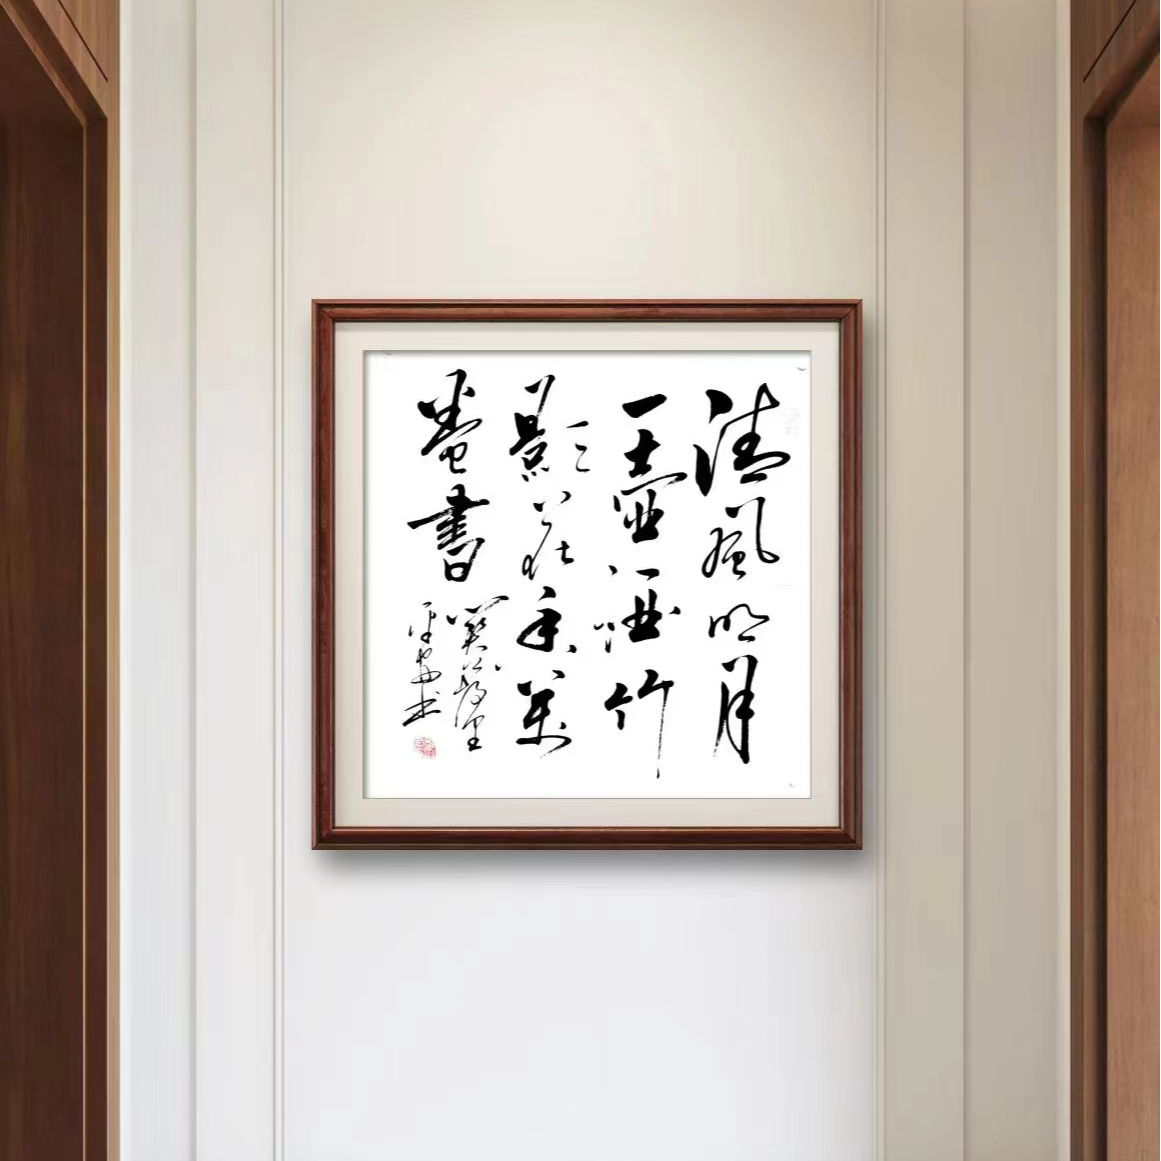 清風明月
一壺酒竹
影花香萬
卷書